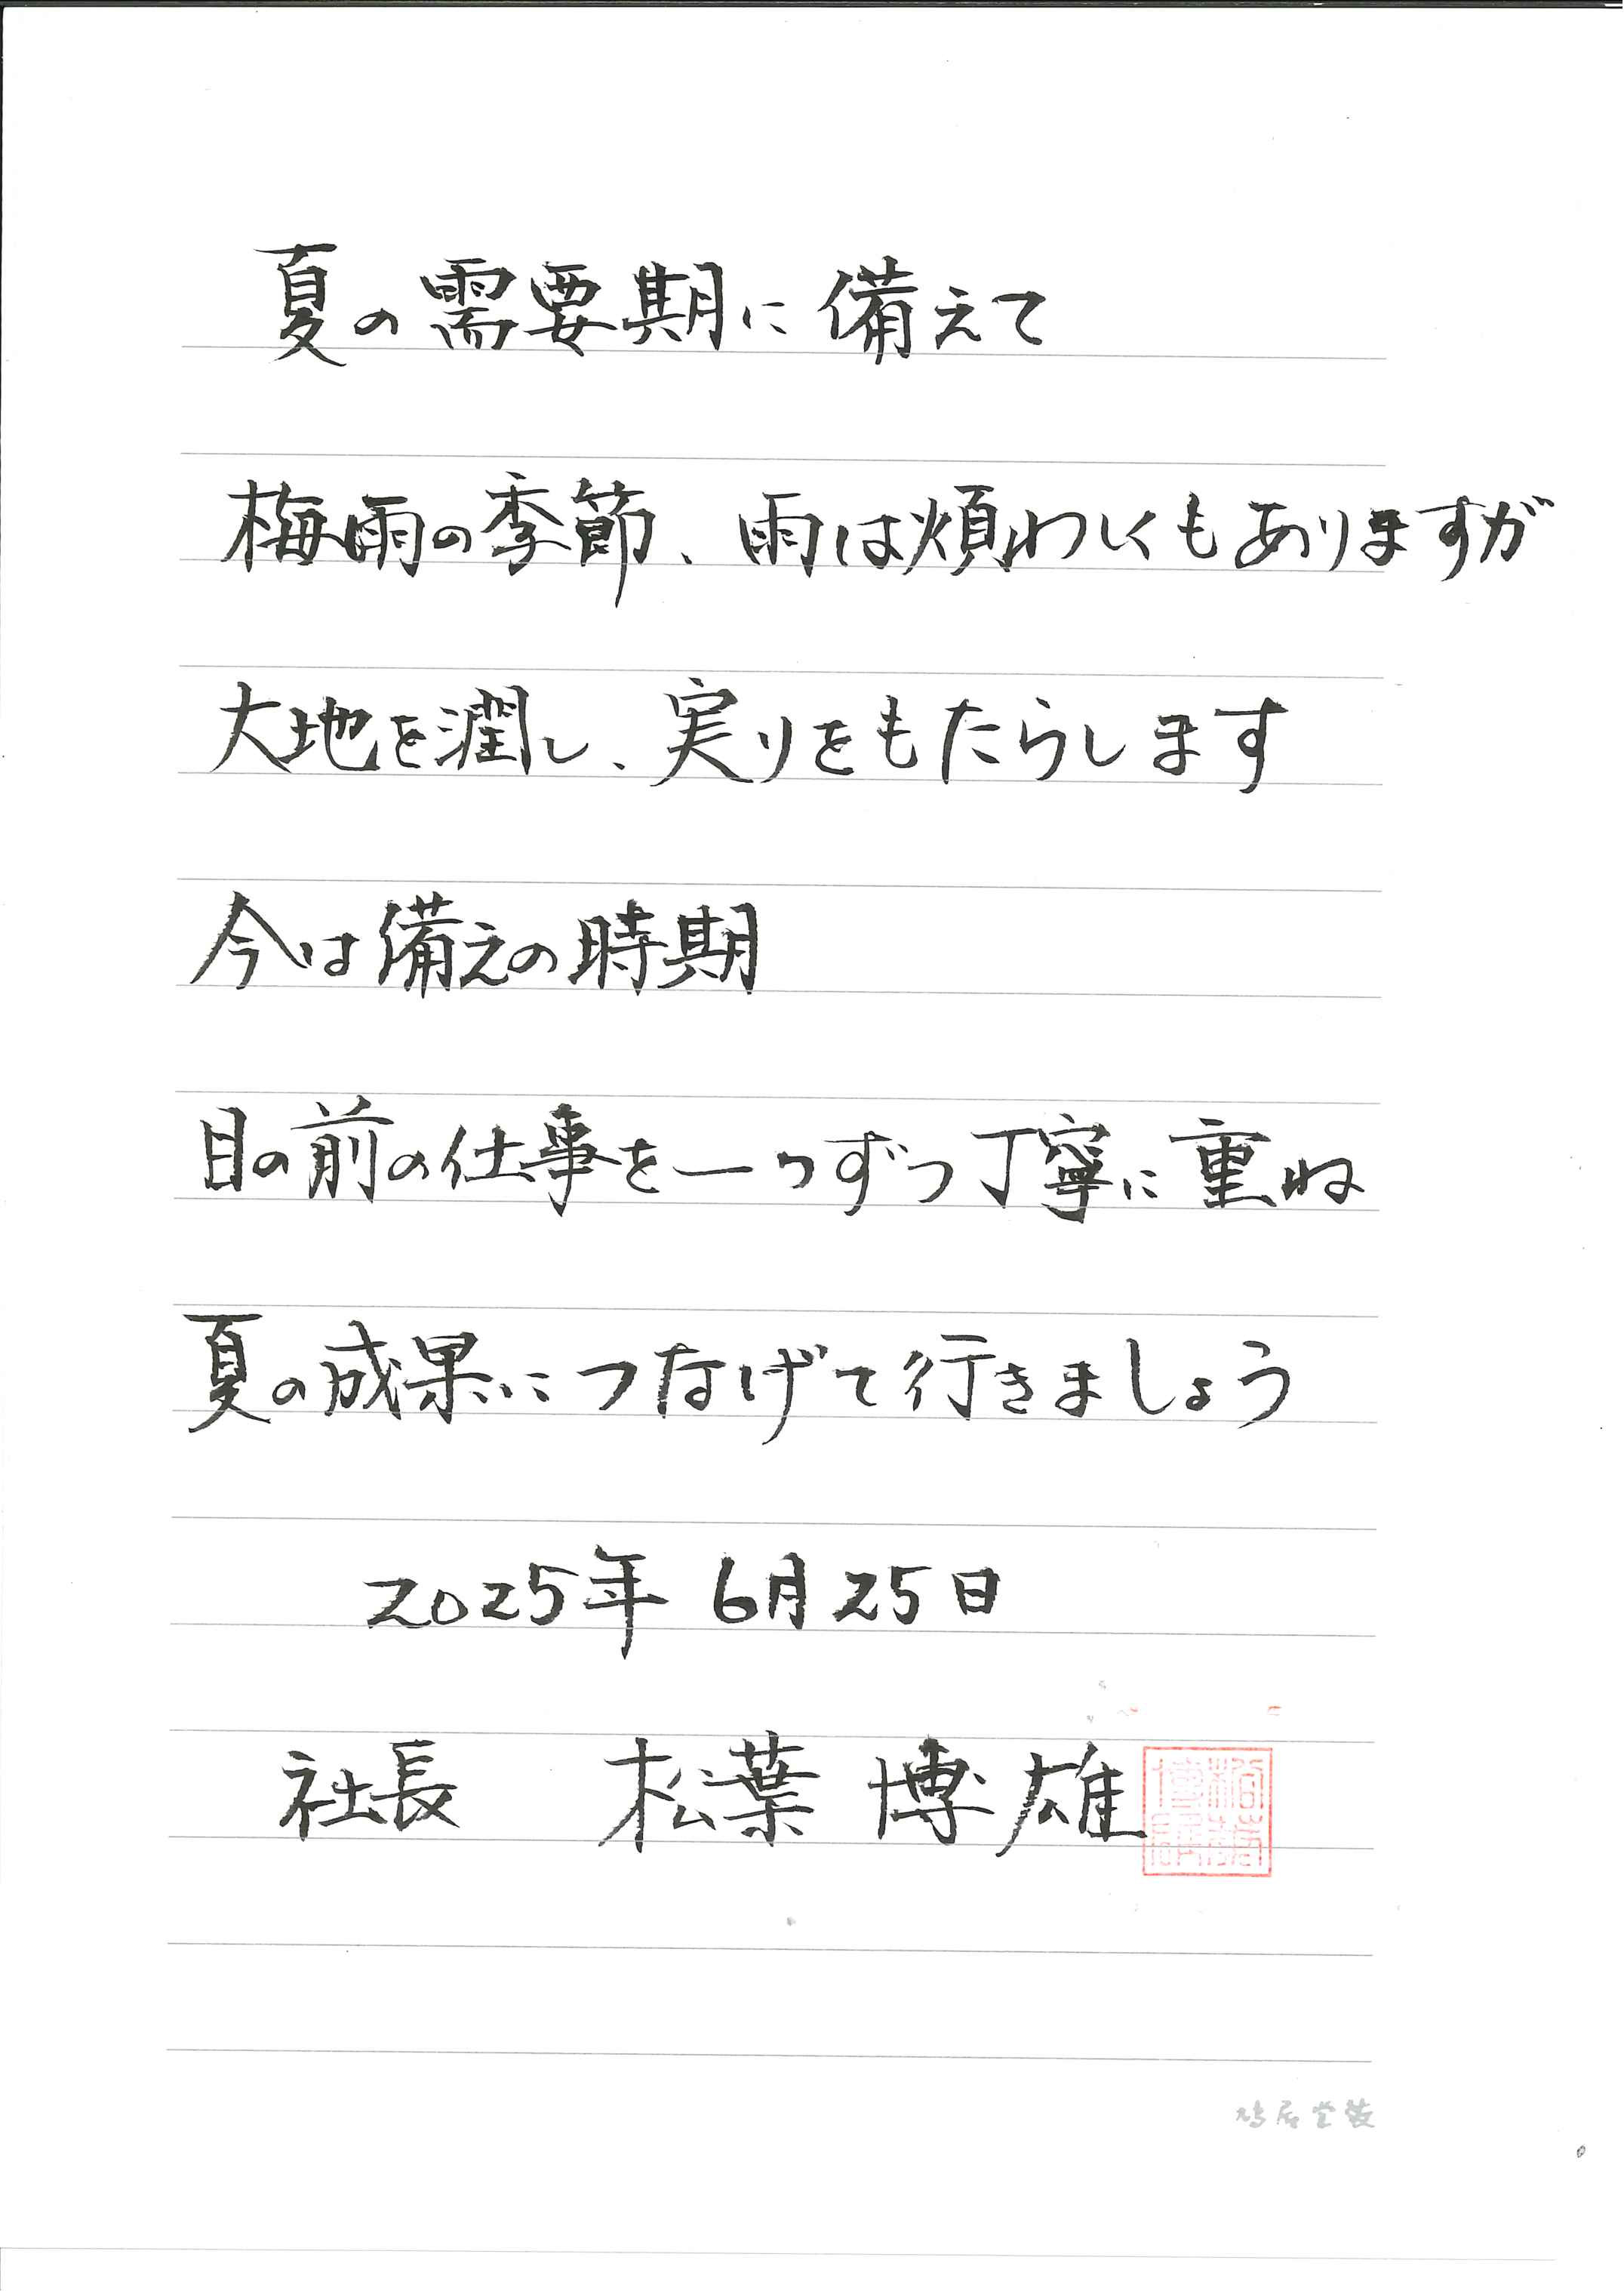 夏の需要期に備えて
梅雨の季節、雨は煩わしくもありますが
大地を潤し、実りをもたらします
今は備えの時期
目の前の仕事を一つずつ丁寧に重ね
夏の成果につなげて行きましょう
2025年 6月25日
社長 松葉 博雄
鳩居堂製